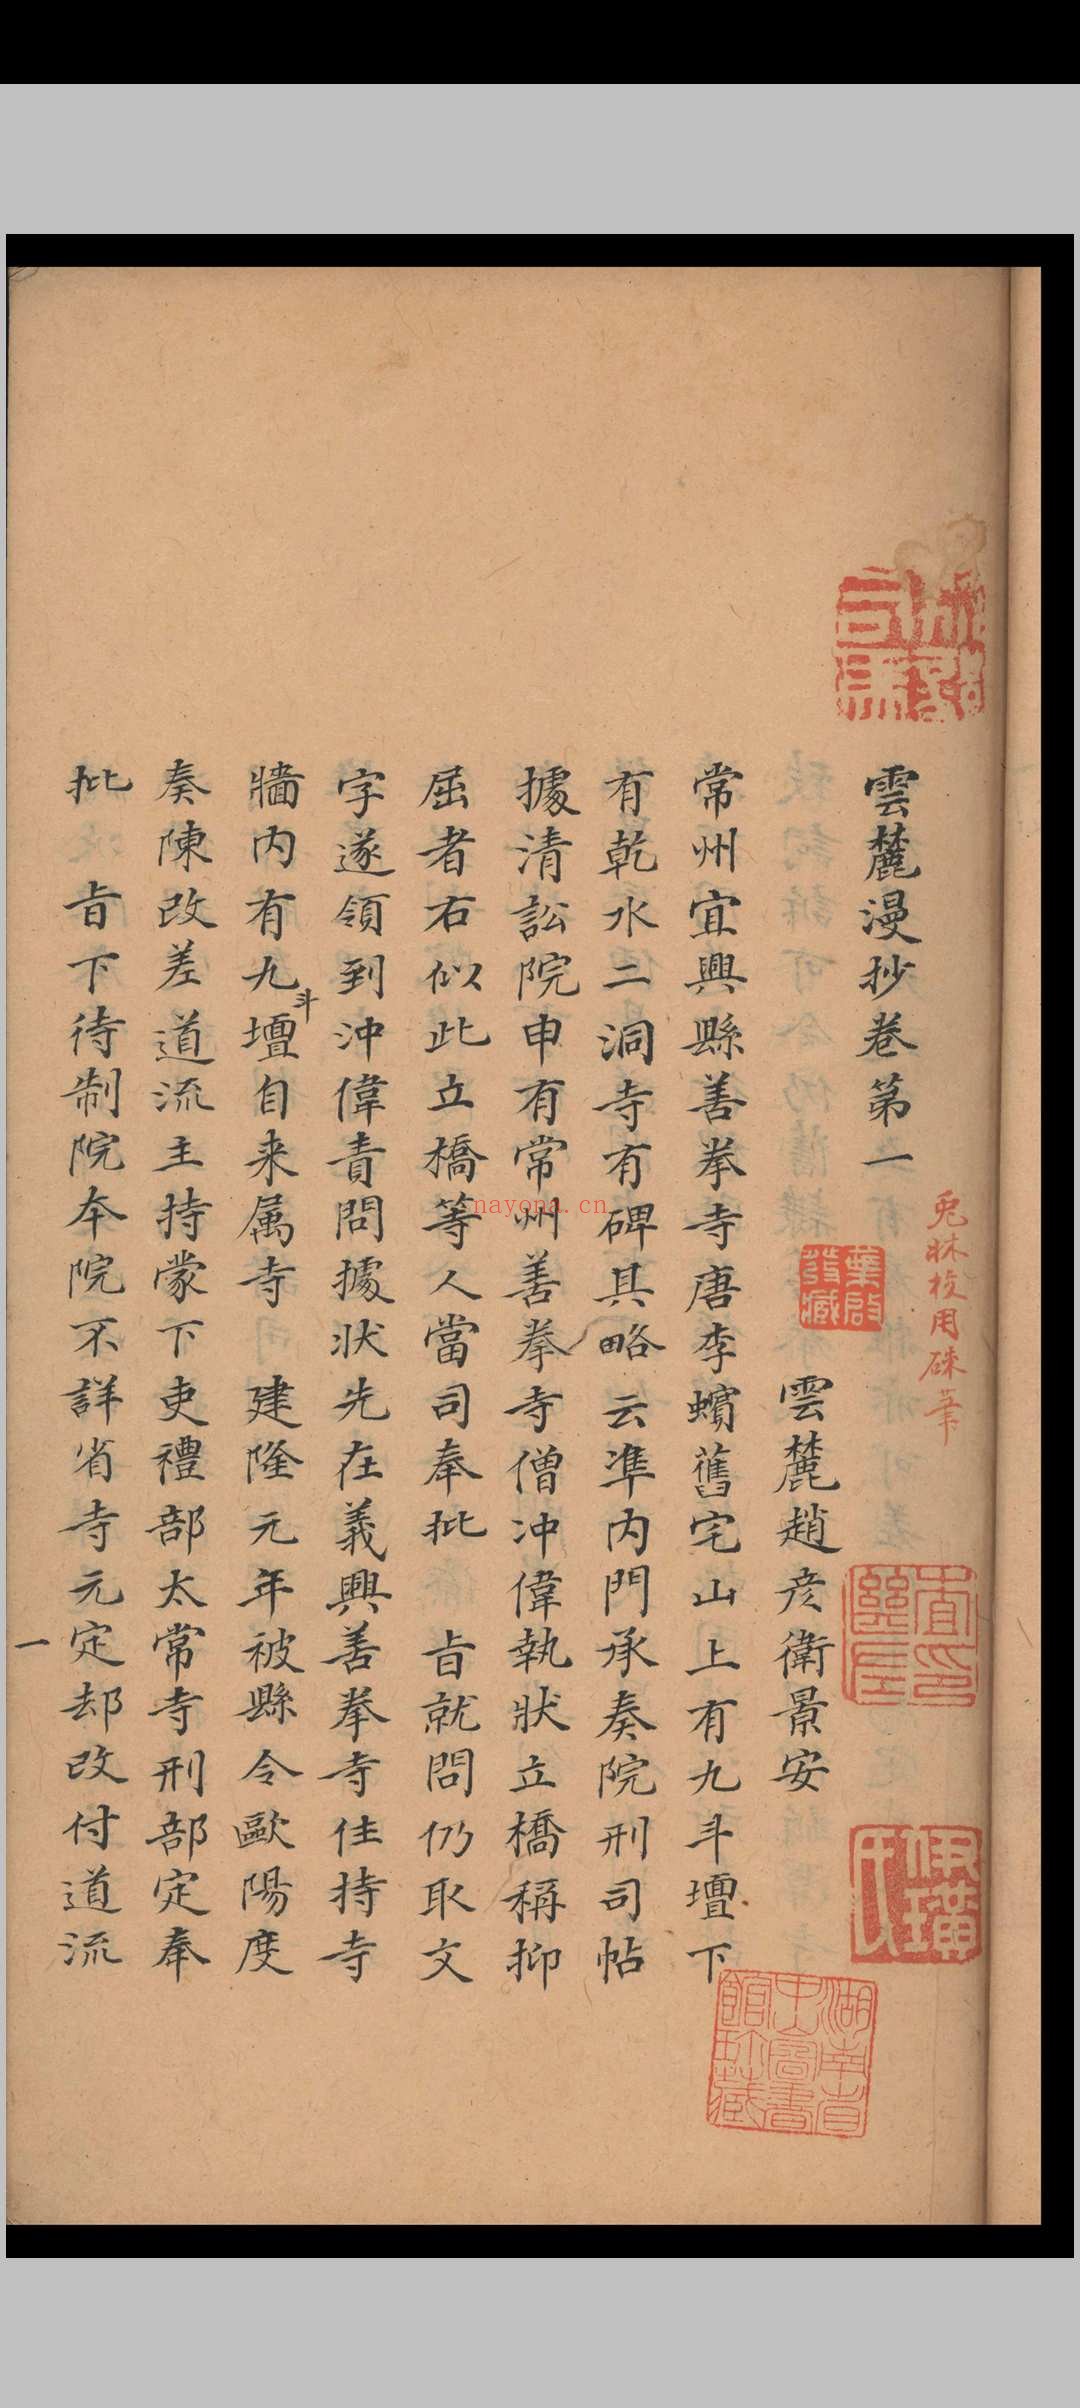 雲麓漫抄卷第一
兎牀校用硃筆
雲麓趙彥衛景安
常州宜興縣善拳寺唐李蠙舊宅山上有九斗壇下
有乾水二洞寺有碑其略云準內門承奏院刑司帖
據清訟院申有常州善拳寺僧沖偉執狀立橋稱抑
屈者右似此立橋等人當司奉批 旨就問仍取文
字遂領到沖偉責問據狀先在義興善拳寺住持寺
牆内有九斗壇自来属寺 建隆元年被縣令歐陽度
奏陳改差道流主持蒙下吏禮部太常寺刑部定奉
批 旨下待制院本院不詳省寺元定却改付道流
一
葉啟發藏
湖南省中山圖書館珍藏
nayona.cn